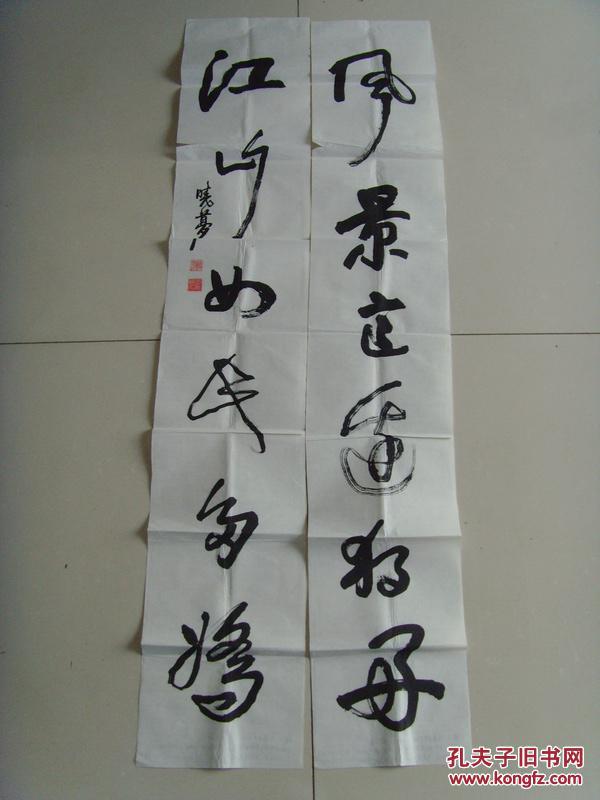 风景这边独好
江山如此多娇
晓梦
孔夫子旧书网
www.kongfz.com